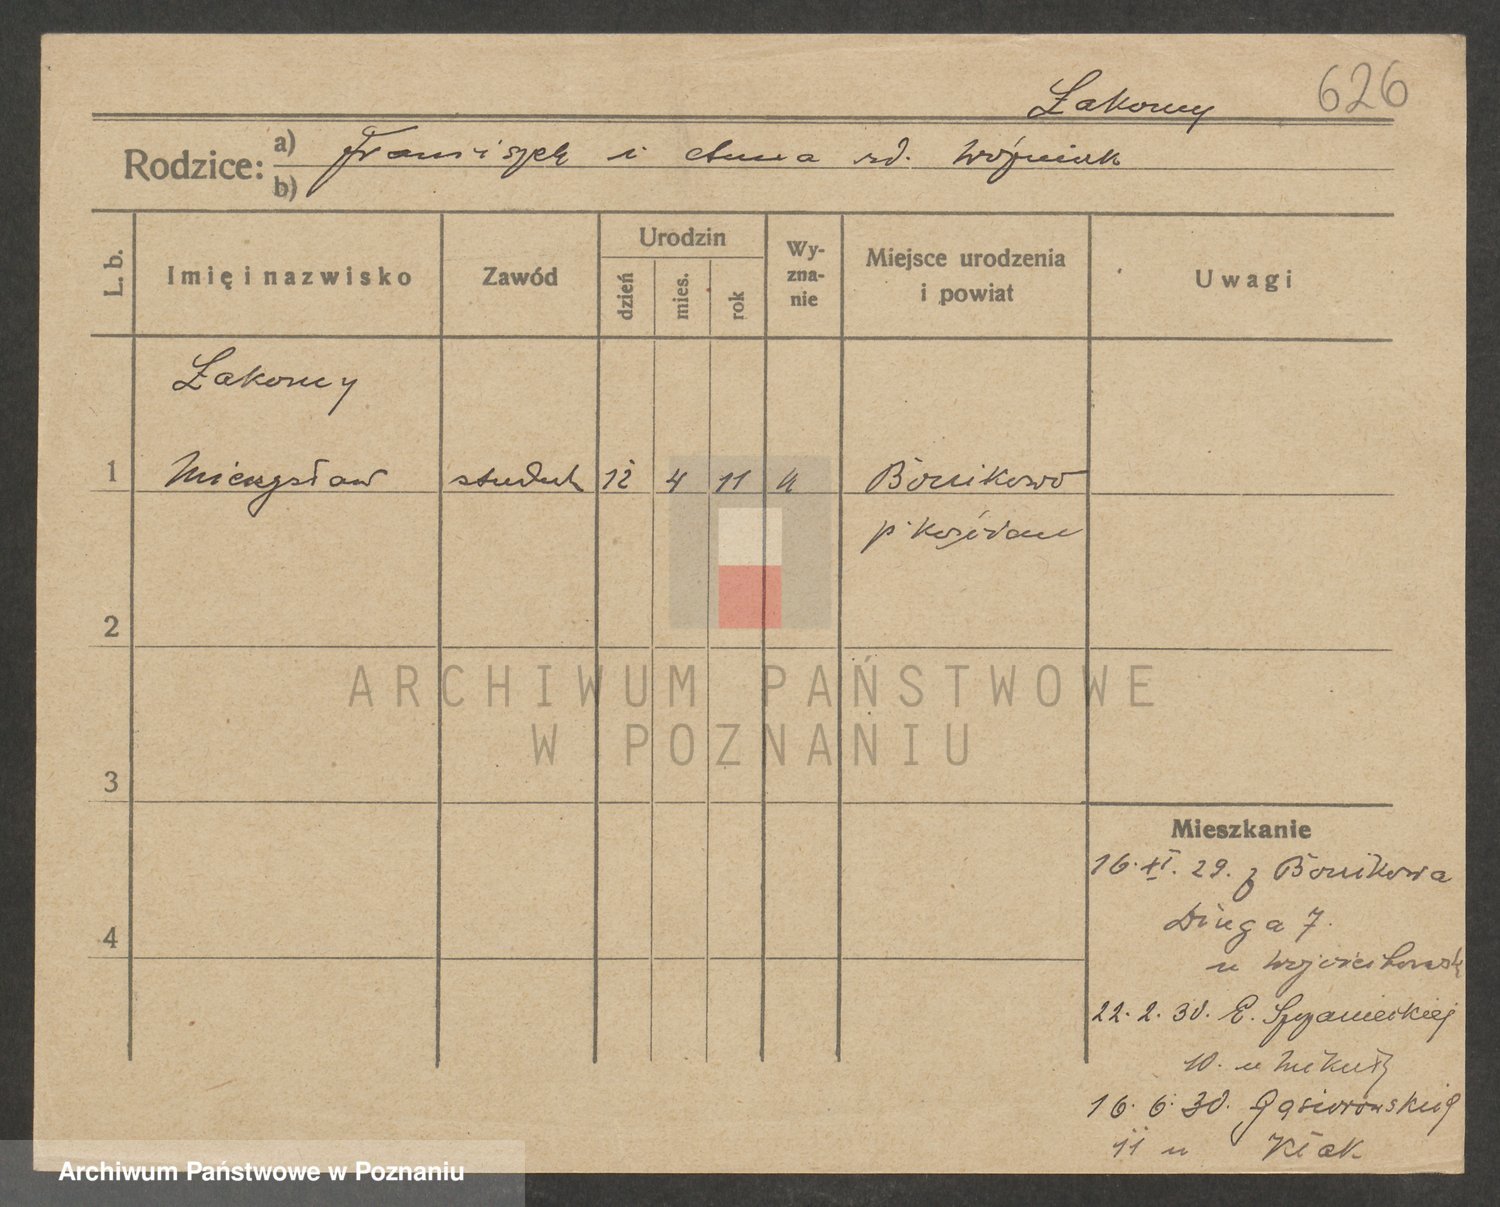 626
Łakomy
Rodzice: a) Franciszek i Anna rd. Woźniak
b)
L. b.
Imię i nazwisko
Zawód
Urodzin
dzień
mies.
rok
Wy-
zna-
nie
Miejsce urodzenia
i powiat
Uwagi
Łakomy
1 Mieczysław student 12 4 11 k Bonikowo
p. Kościan
2
3
4
Mieszkanie
16. XI. 29. z Bonikowa
Długa 7.
u
22. 2. 30. E. Szczanieckiej
10. u
16. 6. 30. Gąsiorowskich
11 u
ARCHIWUM PAŃSTWOWE
W POZNANIU
Archiwum Państwowe w Poznaniu